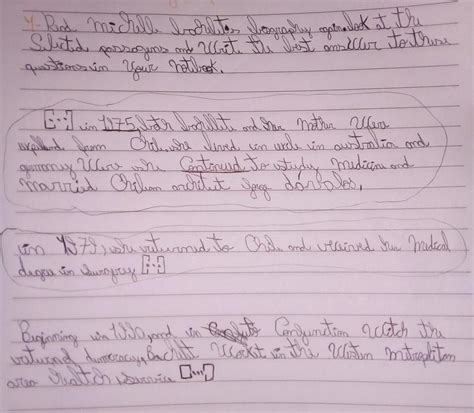 4- Read michelle bachelites biography again look at the
Slected passagens and Write the best answer to these
questions in Your notbook.
[...] in 1975, bachellte and her mother Were
expelled from Chile, she lived in exile in australia and
germany Were she Continued to study Medicine and
married Chilean architect Jorge dávalos.
in 1979, she returned to Chile and received her Medical
degree in surgery [...]
Beginning in 1990, and in Conjunction Witch the
returned democracy, Bachlet Workit in the Western metropolitan
area health service [...]